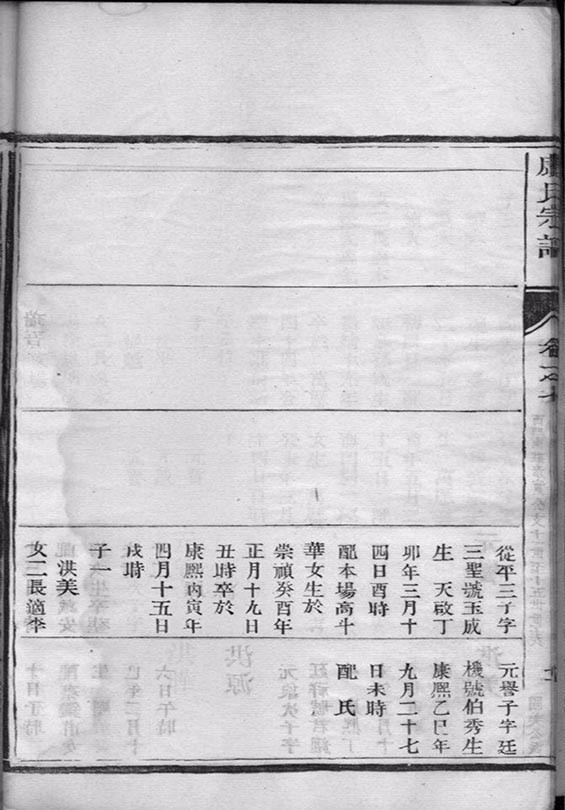 盧氏宗譜
卷之七
從平三子字
三聖號玉成
生 天啟丁
卯年三月十
四日酉時
配本場高斗
華女生於
崇禎癸酉年
正月十九日
丑時卒於
康熙丙寅年
四月十五日
戌時
子一
洪美
女二長適李
元譽子字廷
機號伯秀生
康熙乙巳年
九月二十七
日未時
配 氏